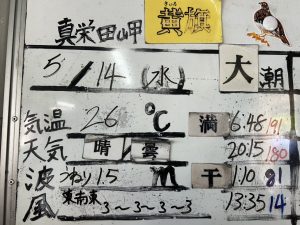 真栄田岬 黄旗
きいろ
5/14(水) 大潮
気温 26℃ 満 6:48 191
天気 晴 曇 20:15 180
波 うねり1.5m 干 1:10 81
風 東南東 3~3~3~3 13:35 14